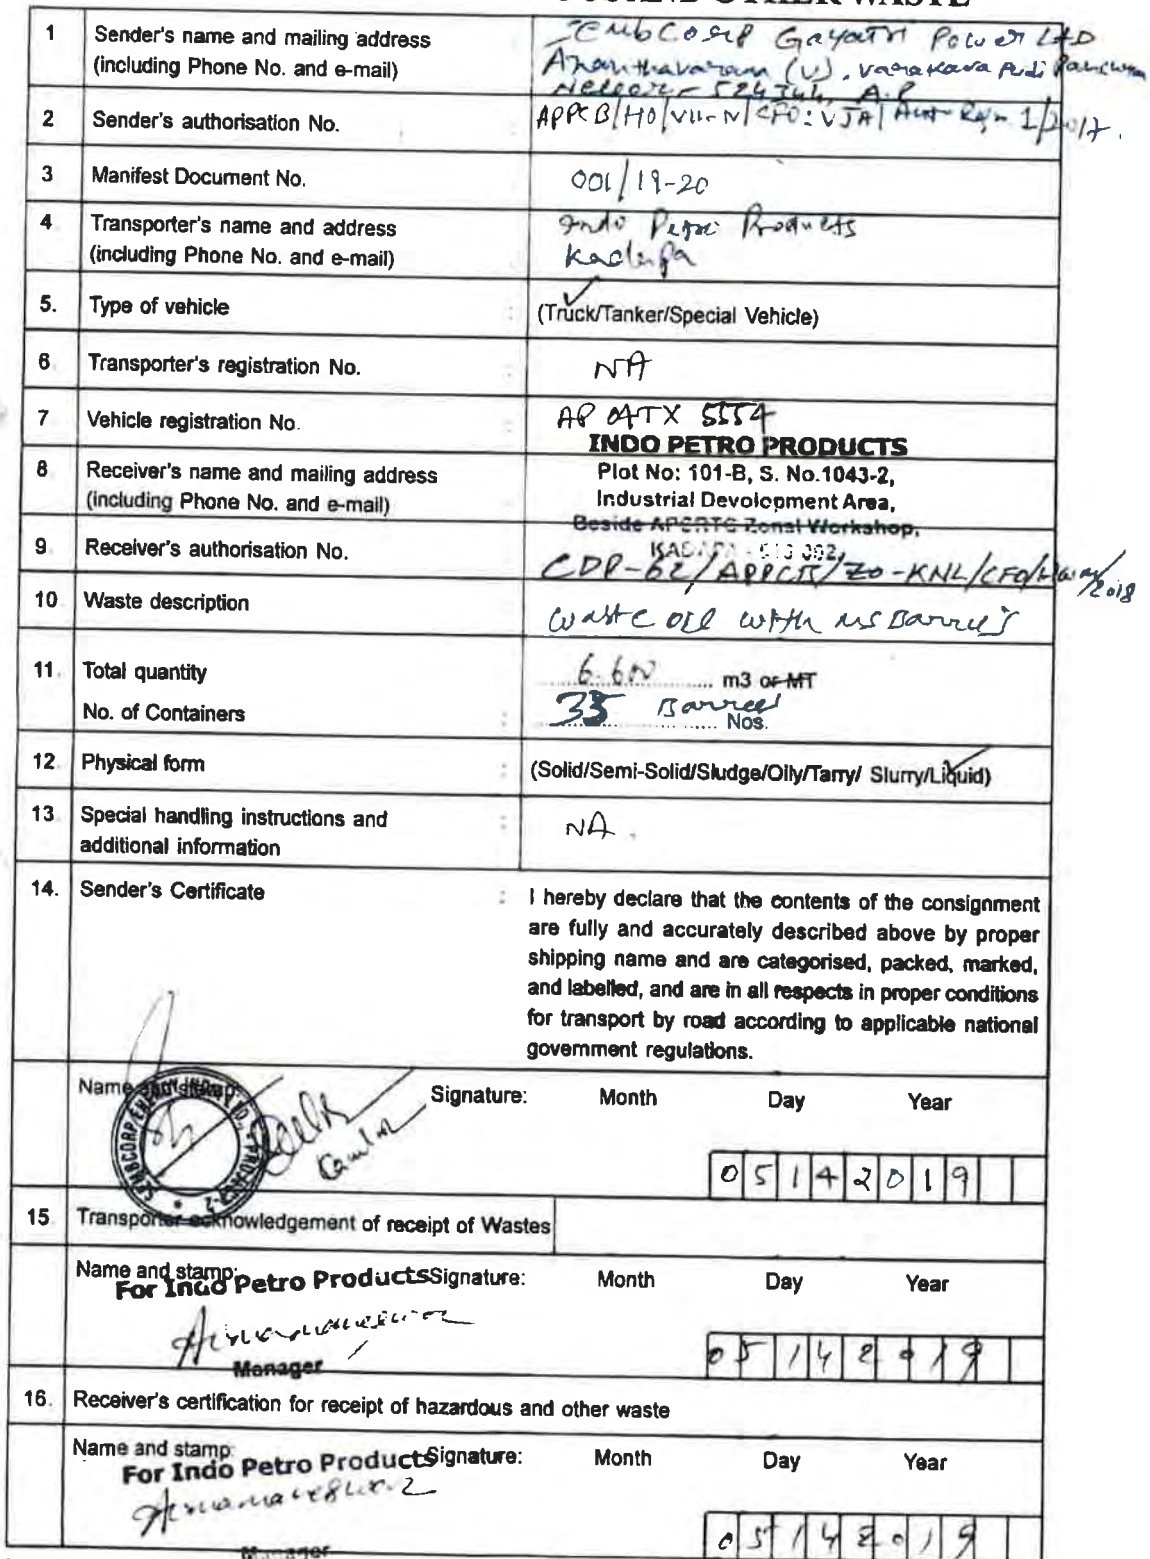 OTHER WASTE
1 Sender's name and mailing address (including Phone No. and e-mail)
Sembcorp Gayatri Power LTD
Ananthavaram (V), Varakavipudi Panchayat
Nellore - 524344, A.P
2 Sender's authorisation No.
APPCB/HO/VII-N/CFO: VJA/ 1/2017.
3 Manifest Document No.
001/19-20
4 Transporter's name and address (including Phone No. and e-mail)
Indo Petro Products
Kadapa
5. Type of vehicle : (Truck/Tanker/Special Vehicle)
6 Transporter's registration No. : NA
7 Vehicle registration No. AP 04TX 5554
INDO PETRO PRODUCTS
8 Receiver's name and mailing address (including Phone No. and e-mail)
Plot No: 101-B, S. No.1043-2,
Industrial Devolopment Area,
Beside APSRTC Zonal Workshop,
9 Receiver's authorisation No.
KADAPA - 516 002,
CDP-62/APPCB/ZO-KNL/CFO/HWM/2018
10 Waste description
Waste oil with ms Barrels
11. Total quantity 6.600 m3 or MT
No. of Containers : 33 Barrels Nos.
12. Physical form : (Solid/Semi-Solid/Sludge/Oily/Tarry/ Slurry/Liquid)
13. Special handling instructions and additional information : NA.
14. Sender's Certificate : I hereby declare that the contents of the consignment
are fully and accurately described above by proper
shipping name and are categorised, packed, marked,
and labelled, and are in all respects in proper conditions
for transport by road according to applicable national
government regulations.
Name and stamp: Signature: Month Day Year
05142019
15. Transporter acknowledgement of receipt of Wastes
Name and stamp: Signature: Month Day Year
For Indo Petro Products
Manager
05142019
16. Receiver's certification for receipt of hazardous and other waste
Name and stamp: Signature: Month Day Year
For Indo Petro Products
05142019
Manager